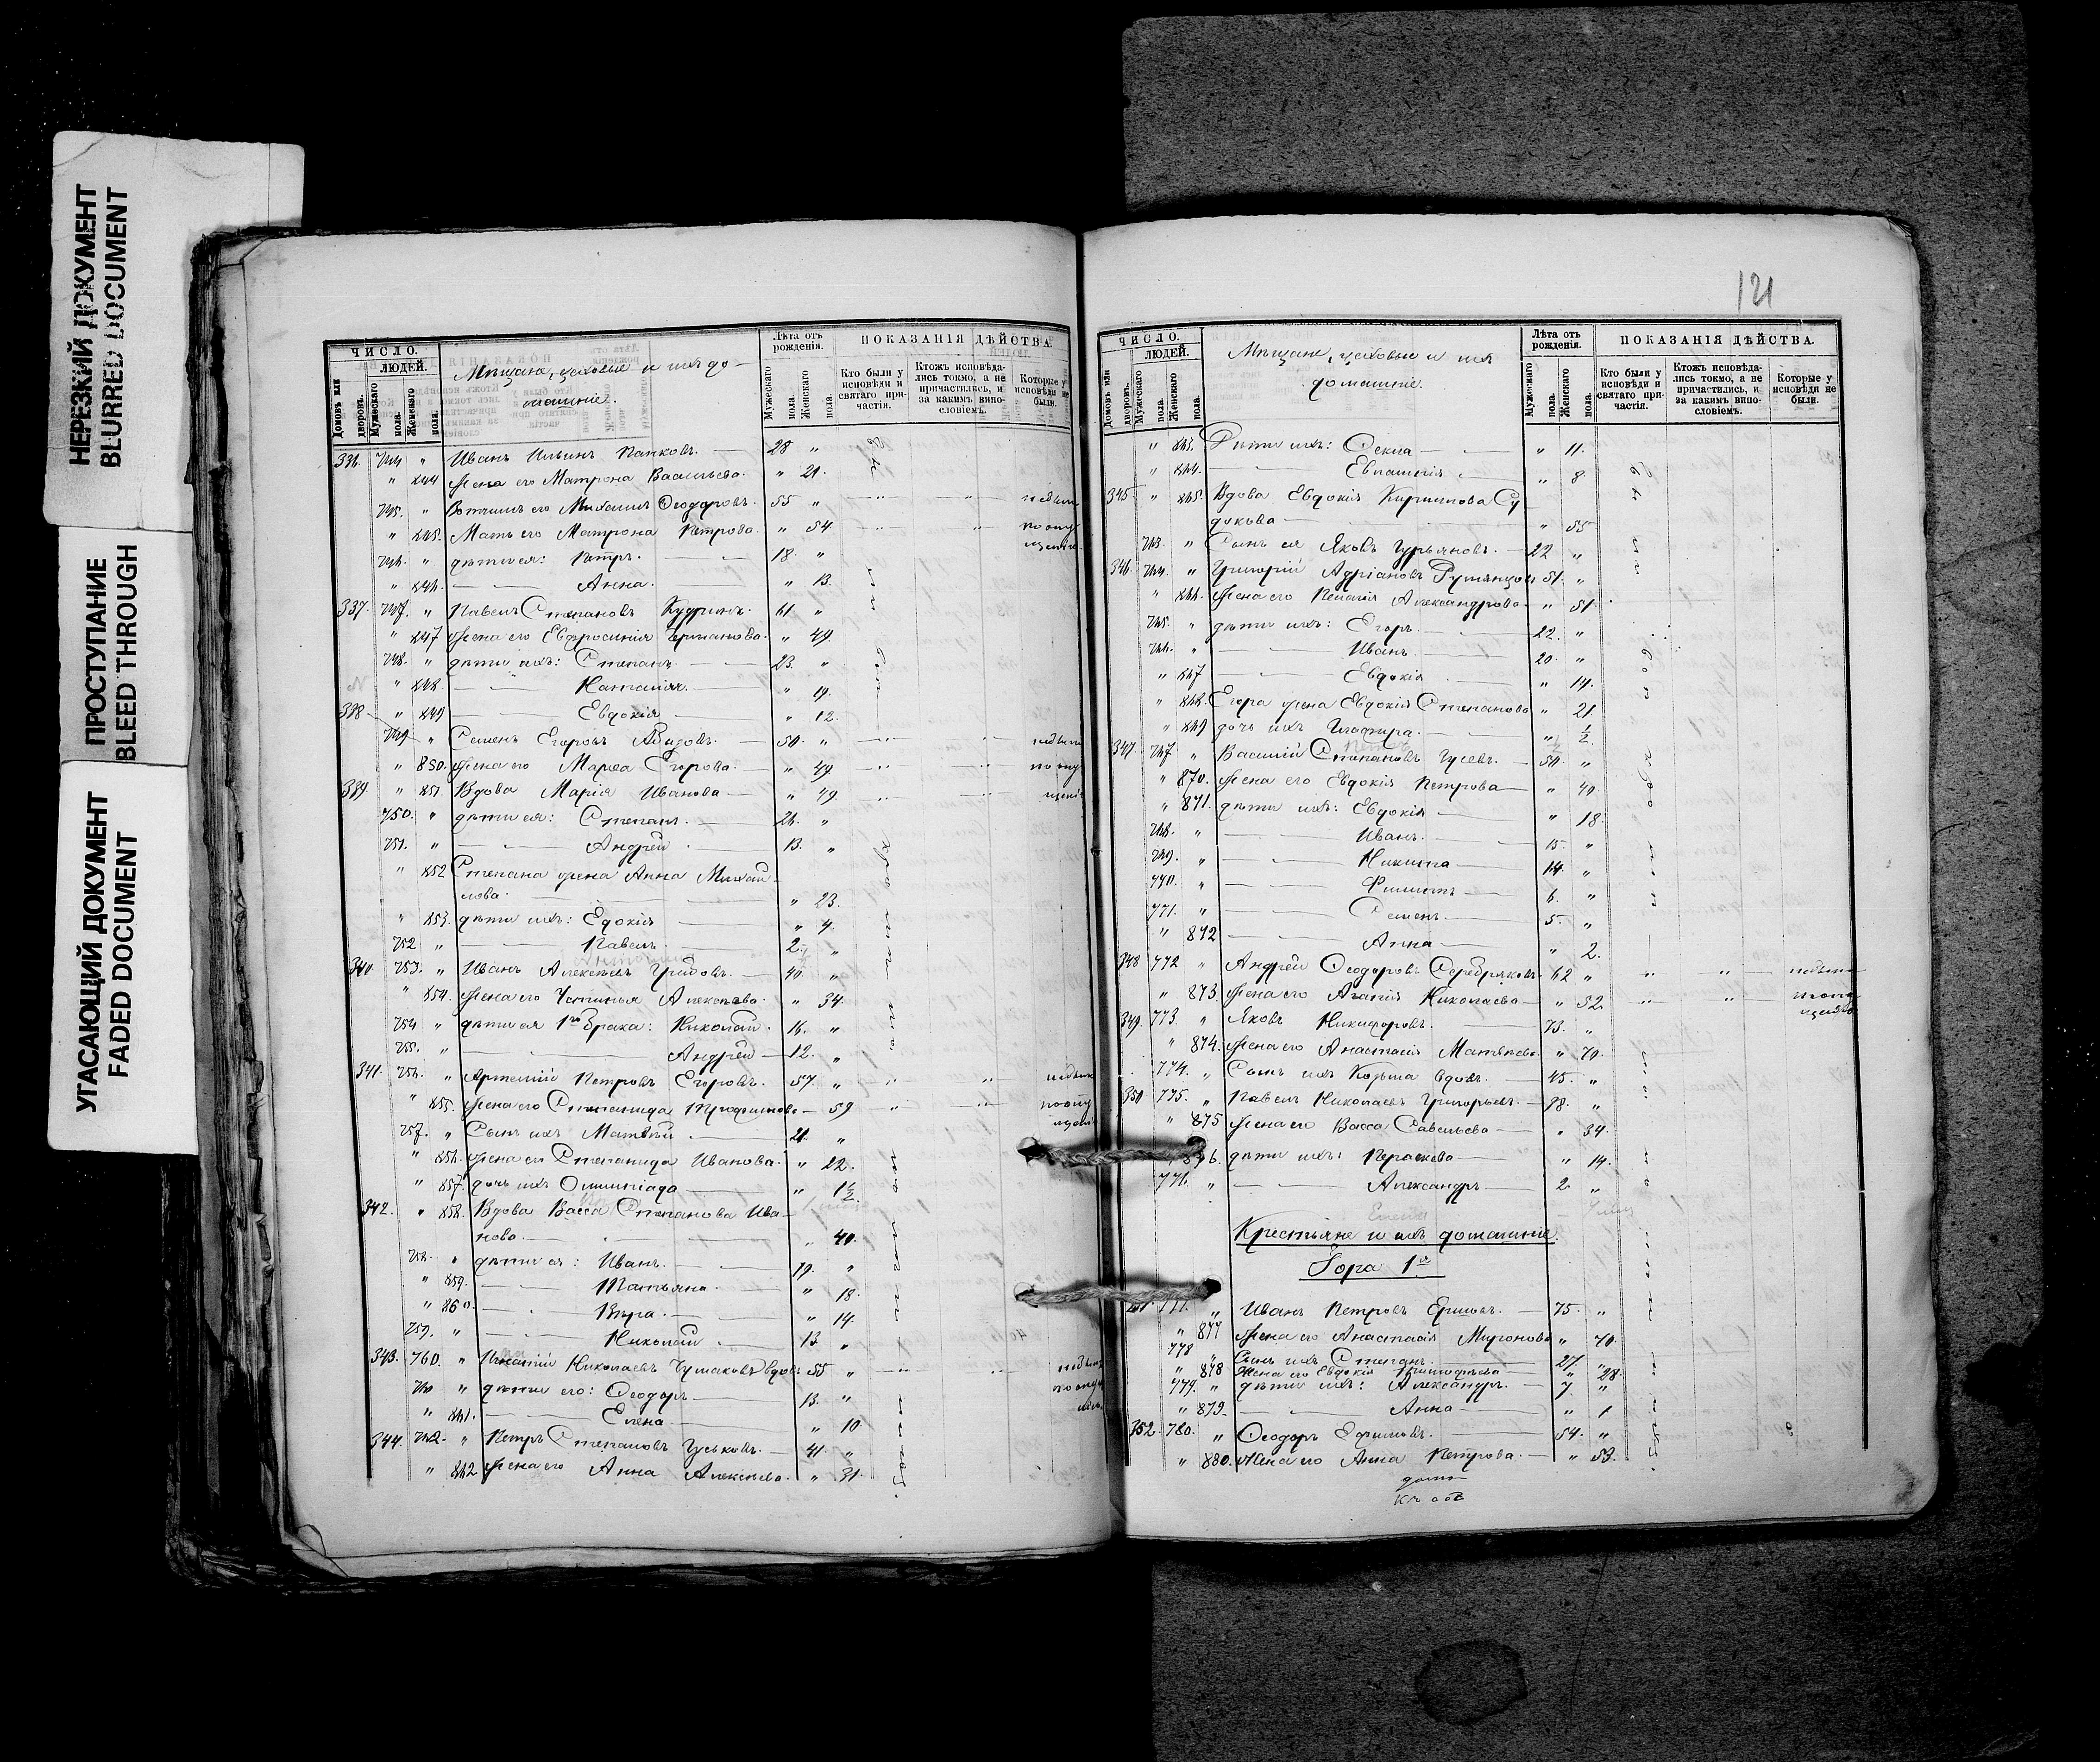 НЕРЕЗКИЙ ДОКУМЕНТ
BLURRED DOCUMENT
ПРОСТУПАНИЕ
BLEED THROUGH
УГАСАЮЩИЙ ДОКУМЕНТ
FADED DOCUMENT
ЧИСЛО.
ЛЮДЕЙ.
Домовъ или дворовъ.
Мужескаго пола.
Женскаго пола.
Мѣщане, цеховые и ихъ до-
машніе.
Лѣта отъ рожденія.
Мужескаго пола.
Женскаго пола.
ПОКАЗАНІЯ ДѢЙСТВА.
Кто были у исповѣди и святаго причастія.
Ктожъ исповѣдались токмо, а не причастились, и за какимъ винословіемъ.
Которые у исповѣди не были.
336. 744 " Иванъ Ильинъ Панковъ. 28 "
" 844 Жена его Матрона Васильева. " 21.
745. " Вотчимъ его Михаилъ Ѳеодоровъ. 55 "
" 845. Мать его Матрона Петрова. " 54
746. " дѣти ея: Петръ. 18. "
" 846. Анна. " 13.
337. 747. " Павелъ Степановъ Кудринъ. 61 "
" 847 Жена его Евфросинія Германова. " 49.
748. " дѣти ихъ: Степанъ. 23. "
" 848. Наталія. " 19.
" 849 Евдокія " 12.
338 749 " Семенъ Егоровъ 50. "
" 850. Жена его Марѳа Егорова. " 49
339 " 851. Вдова Марія Иванова " 49
750. " дѣти ея: Степанъ. 26. "
751. " Андрей 13. "
" 852 Степана жена Анна Михай-
лова. " 23.
" 853. дѣти ихъ: Едокія " 4.
752 " Павелъ. 2. "
340 753. " Иванъ Алексѣевъ Грибовъ. 40. "
" 854. Жена его Устинья Алексѣева. " 34.
754 " дѣти ея 1го брака: Николай. 16. "
755. " Андрей 12. "
341. 756. " Артемій Петровъ Егоровъ. 57. "
" 855. Жена его Степанида Трофимова " 59
757. " Сынъ ихъ Матвѣй. 21. "
" 856. Жена его Степанида Иванова. " 22.
" 857. дочь ихъ Олимпіада " 1½
342. " 858. Вдова Васса Степанова Ива-
нова. " 40.
758. " дѣти ея: Иванъ. 19. "
" 859. Татьяна. " 18.
" 860. Вѣра. " 14.
759. " Николай 13. "
343. 760. " Николаевъ Чумаковъ вдовъ 55 "
761 " дѣти его: Ѳеодоръ 13. "
" 861. Елена. " 10
344. 762. " Петръ Степановъ Гуськовъ. 41. "
" 862 Жена его Анна Алексѣева. " 31.
121
ЧИСЛО.
ЛЮДЕЙ.
Домовъ или дворовъ.
Мужескаго пола.
Женскаго пола.
Мѣщане, цеховые и ихъ
домашніе.
Лѣта отъ рожденія.
Мужескаго пола.
Женскаго пола.
ПОКАЗАНІЯ ДѢЙСТВА.
Кто были у исповѣди и святаго причастія.
Ктожъ исповѣдались токмо, а не причастились, и за какимъ винословіемъ.
Которые у исповѣди не были.
" 863. Дѣти ихъ: Ѳекла " 11.
" 864. Евлампія " 8.
345. " 865. Вдова Евдокія Кириллова Су
дакова " 55
763. " Сынъ ея Яковъ Гурьяновъ. 22 "
346. 764. " Григорій Адріановъ Румянцовъ 51. "
" 866. Жена его Пелагія Александрова " 51.
765. " дѣти ихъ: Егоръ. 22. "
766. " Иванъ. 20. "
" 867 Евдокія " 14.
" 868. Егора жена Евдокія Степанова " 21.
" 869 дочь ихъ Глафира. " ½
347. 767. " Василій Степановъ Гусевъ. 50. "
" 870. Жена его Евдокія Петрова " 40.
" 871. дѣти ихъ: Евдокія " 18.
768. " Иванъ. 15. "
769. " Никита 14. "
770. " Филиппъ 6. "
771. " Семенъ. 5. "
" 872 Анна " 2.
348 772 " Андрей Ѳеодоровъ Серебряковъ 62 "
" 873. Жена его Агапія Николаева " 52.
349. 773. " Яковъ Никифоровъ. 73. "
" 874. Жена его Анастасія Матвѣева. " 70.
774. " Сынъ ихъ Козьма вдовъ. 45. "
350 775. " Павелъ Николаевъ Григорьевъ. 38. "
" 875 Жена его Васса Савельева " 34.
876. дѣти ихъ: Параскева " 14.
776. " Александръ 2. "
Крестьяне и ихъ домашніе.
Гора 1я
351. 777. " Иванъ Петровъ Ершовъ. 75. "
" 877 Жена его Анастасія Миронова " 70.
778 " Сынъ ихъ Степанъ. 27. "
" 878 Жена его Евдокія " 28
779. " дѣти ихъ: Александръ. 7. "
" 879. Анна " 1
352. 780. " Ѳеодоръ Ефимовъ. 54. "
" 880. Жена его Анна Петрова. " 53.